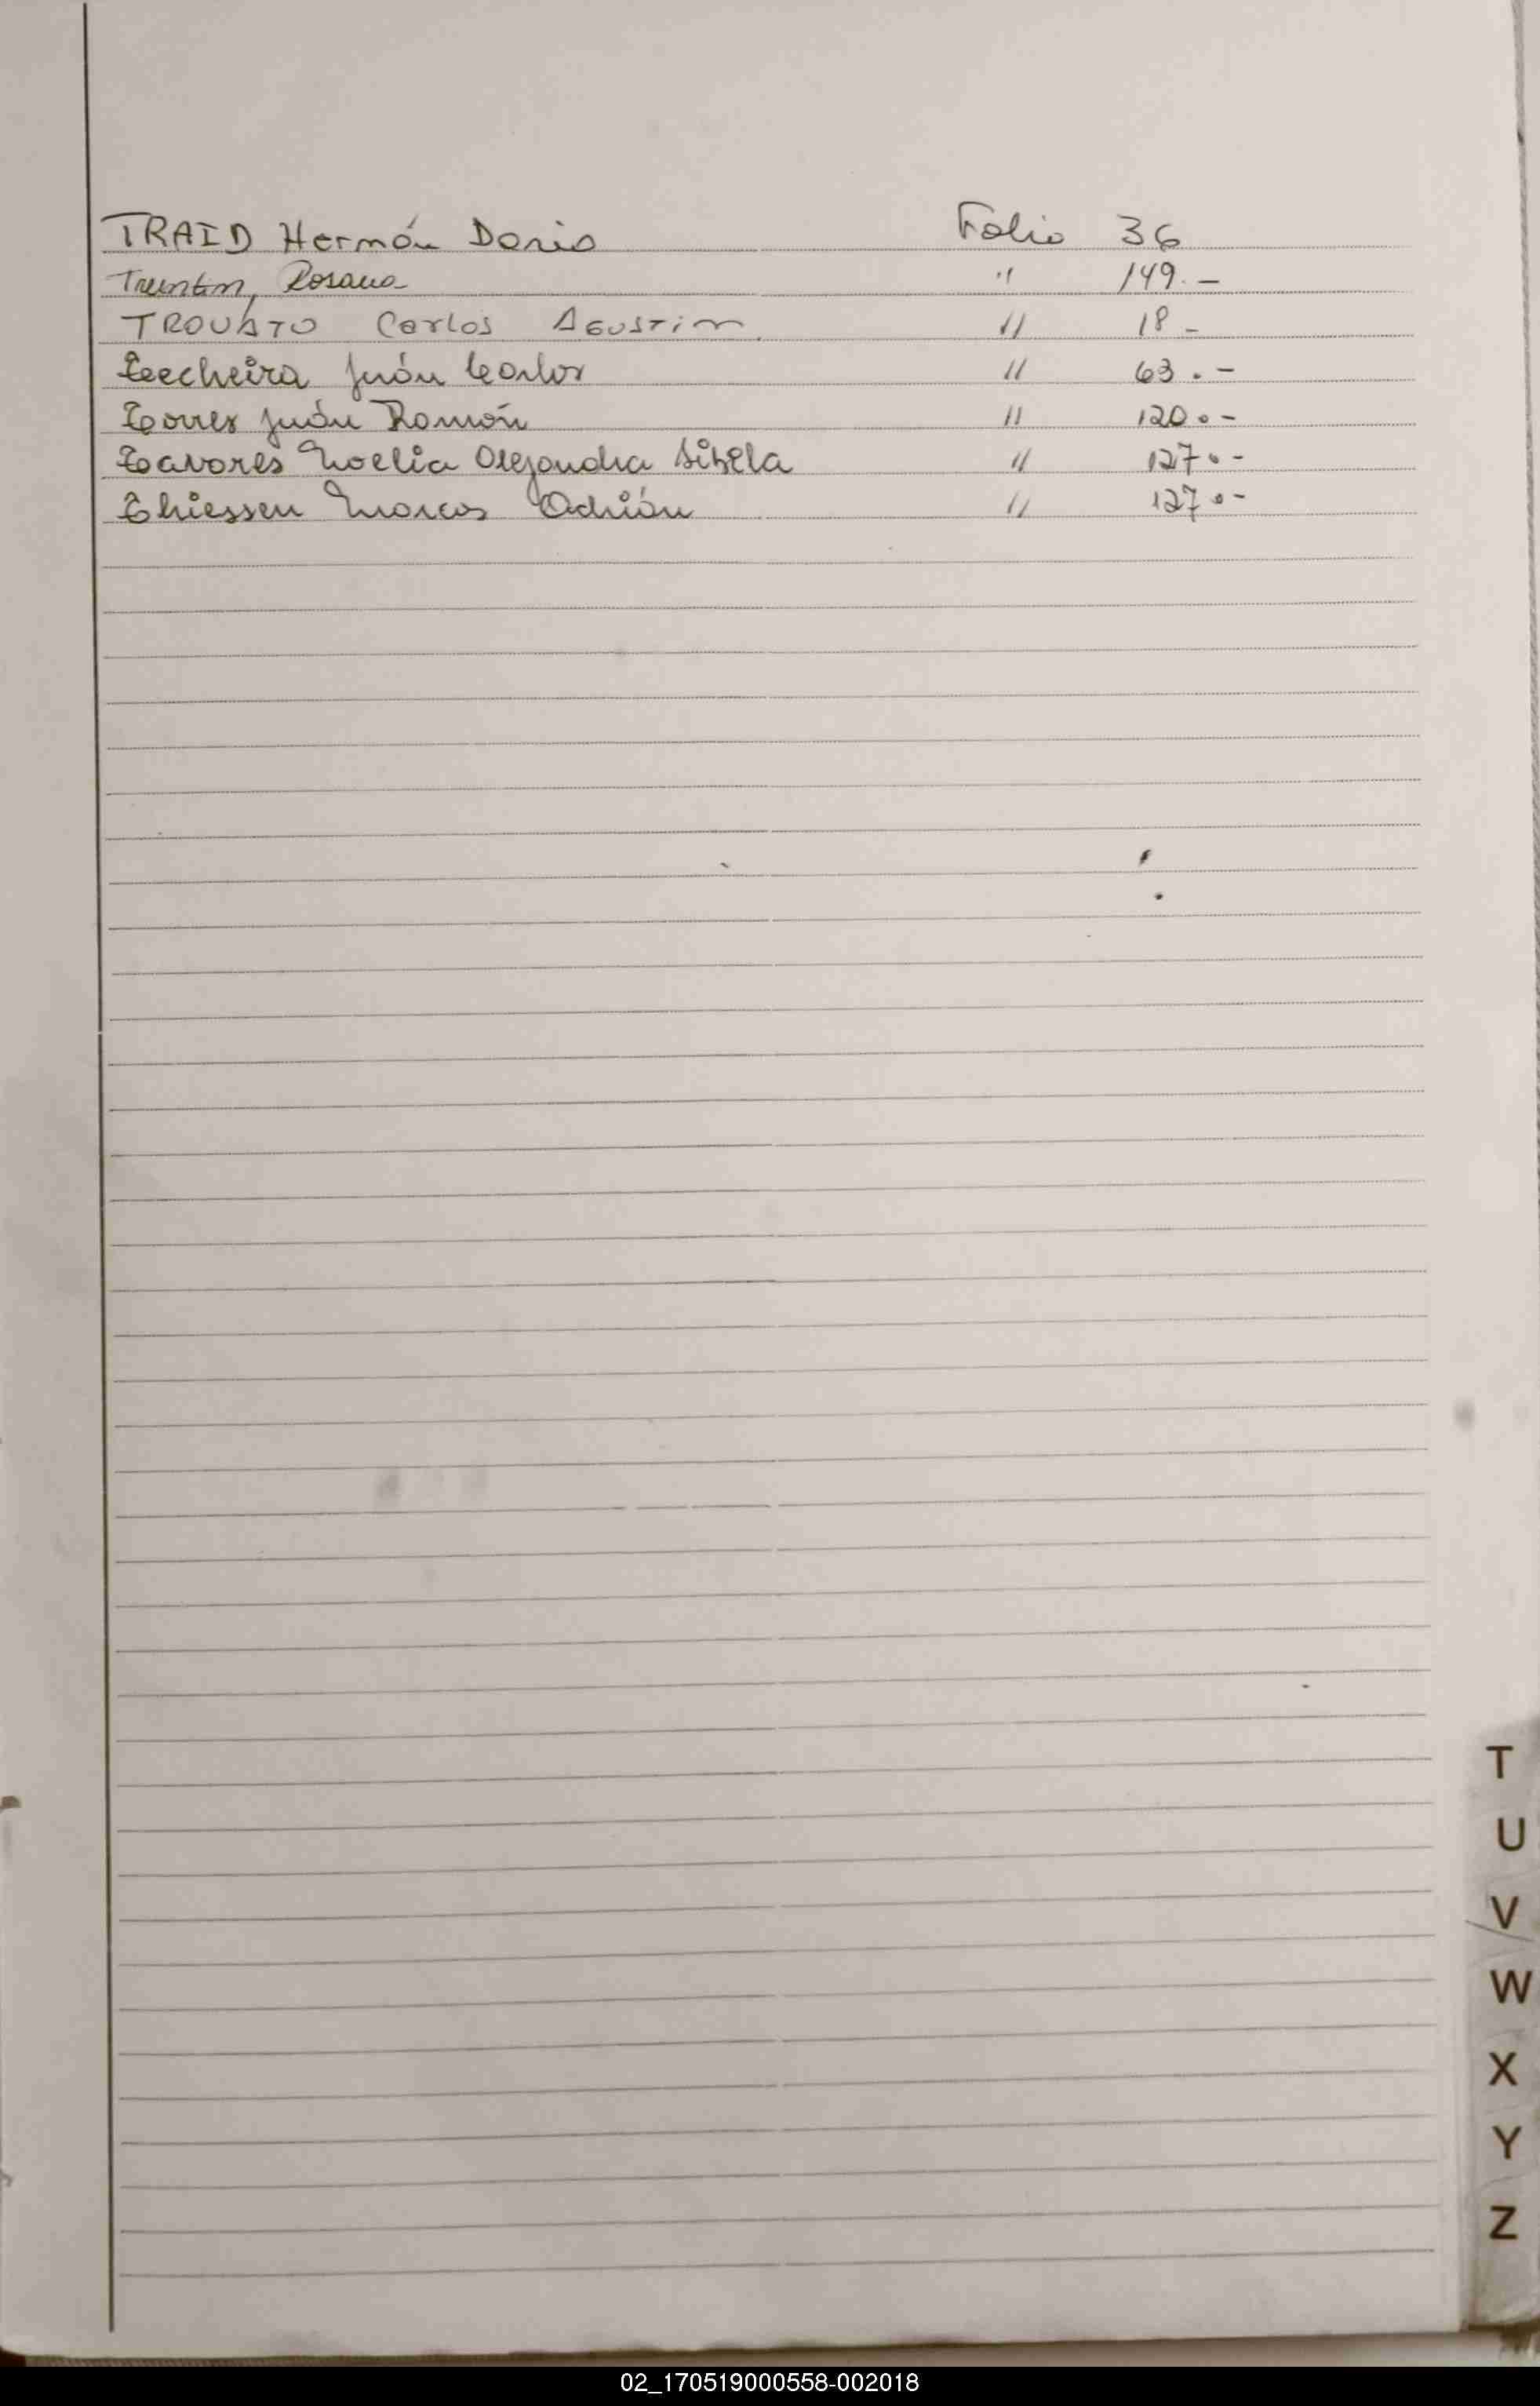 TRAID Hernán Dario Folio 36
Trentin, Rosana " 149.-
TROVATO Carlos AGUSTin " 18-
Techeira Juán Carlos " 63.-
Torres Juán Ramón " 120.-
Tavares Noelia Alejandra Gisela " 127.-
Thiessen Marcos Adrián " 127.-
T
U
V
W
X
Y
Z
02_170519000558-002018